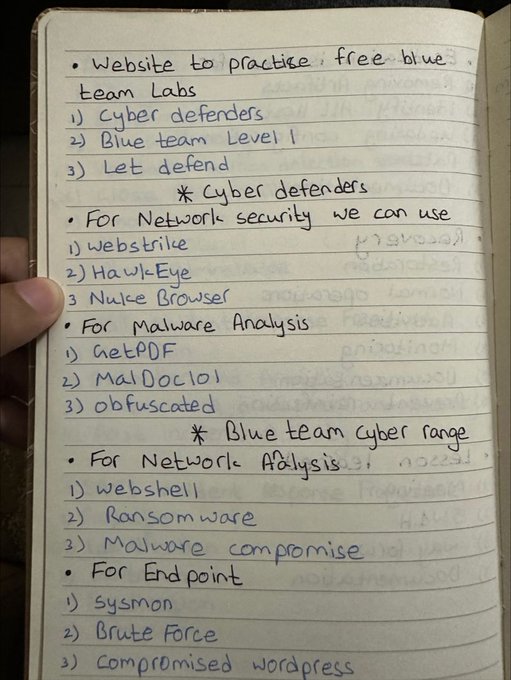 • Website to practise free blue
team Labs
1) Cyber defenders
2) Blue team Level 1
3) Let defend
* Cyber defenders
• For Network security we can use
1) Webstrike
2) HawkEye
3 Nuke Browser
• For Malware Analysis
1) GetPDF
2) MalDoc101
3) obfuscated
* Blue team cyber range
• For Network Analysis
1) webshell
2) Ransomware
3) Malware compromise
• For Endpoint
1) sysmon
2) Brute Force
3) compromised wordpress